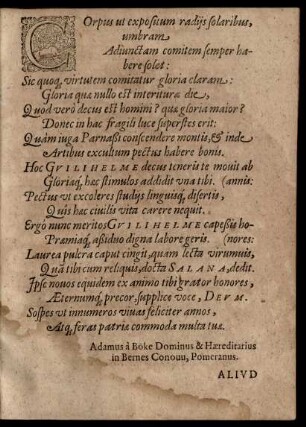 COrpus ut expositum radijs solaribus,
umbram
Adiunctam comitem semper ha-
bere solet:
Sic quoq, virtutem comitatur gloria claram:
Gloria quæ nullo est interitura die,
Quod verò decus est homini? quæ gloria maior?
Donec in hac fragili luce superstes erit:
Quàm iuga Parnassi conscendere montis, & inde
Artibus excultum pectus habere bonis.
Hoc GVILIHELME decus teneris te movit ab
Gloriaq, hæc stimulos addidit una tibi. (annis:
Pectus ut excoleres studijs linguisq, disertis,
Quis hæc civilis vita carere nequit.
Ergò nunc meritos GVILIHELME capessis ho-
Præmiaq, assiduo digna labore geris. (nores:
Laurea pulcra caput cingit, quam lecta virum vis,
Quã tibi cum reliquis, docta SALANA, dedit.
Ipse novos equidem ex animo tibi grator honores,
Æternumq, precor, supplice voce, DEVM.
Sospes ut innumeros vivas feliciter annos,
Atq, feras patriæ commoda multa tuæ.
Adamus à Böke Dominus & Hæreditarius
in Bernes Conouu, Pomeranus.
ALIVD